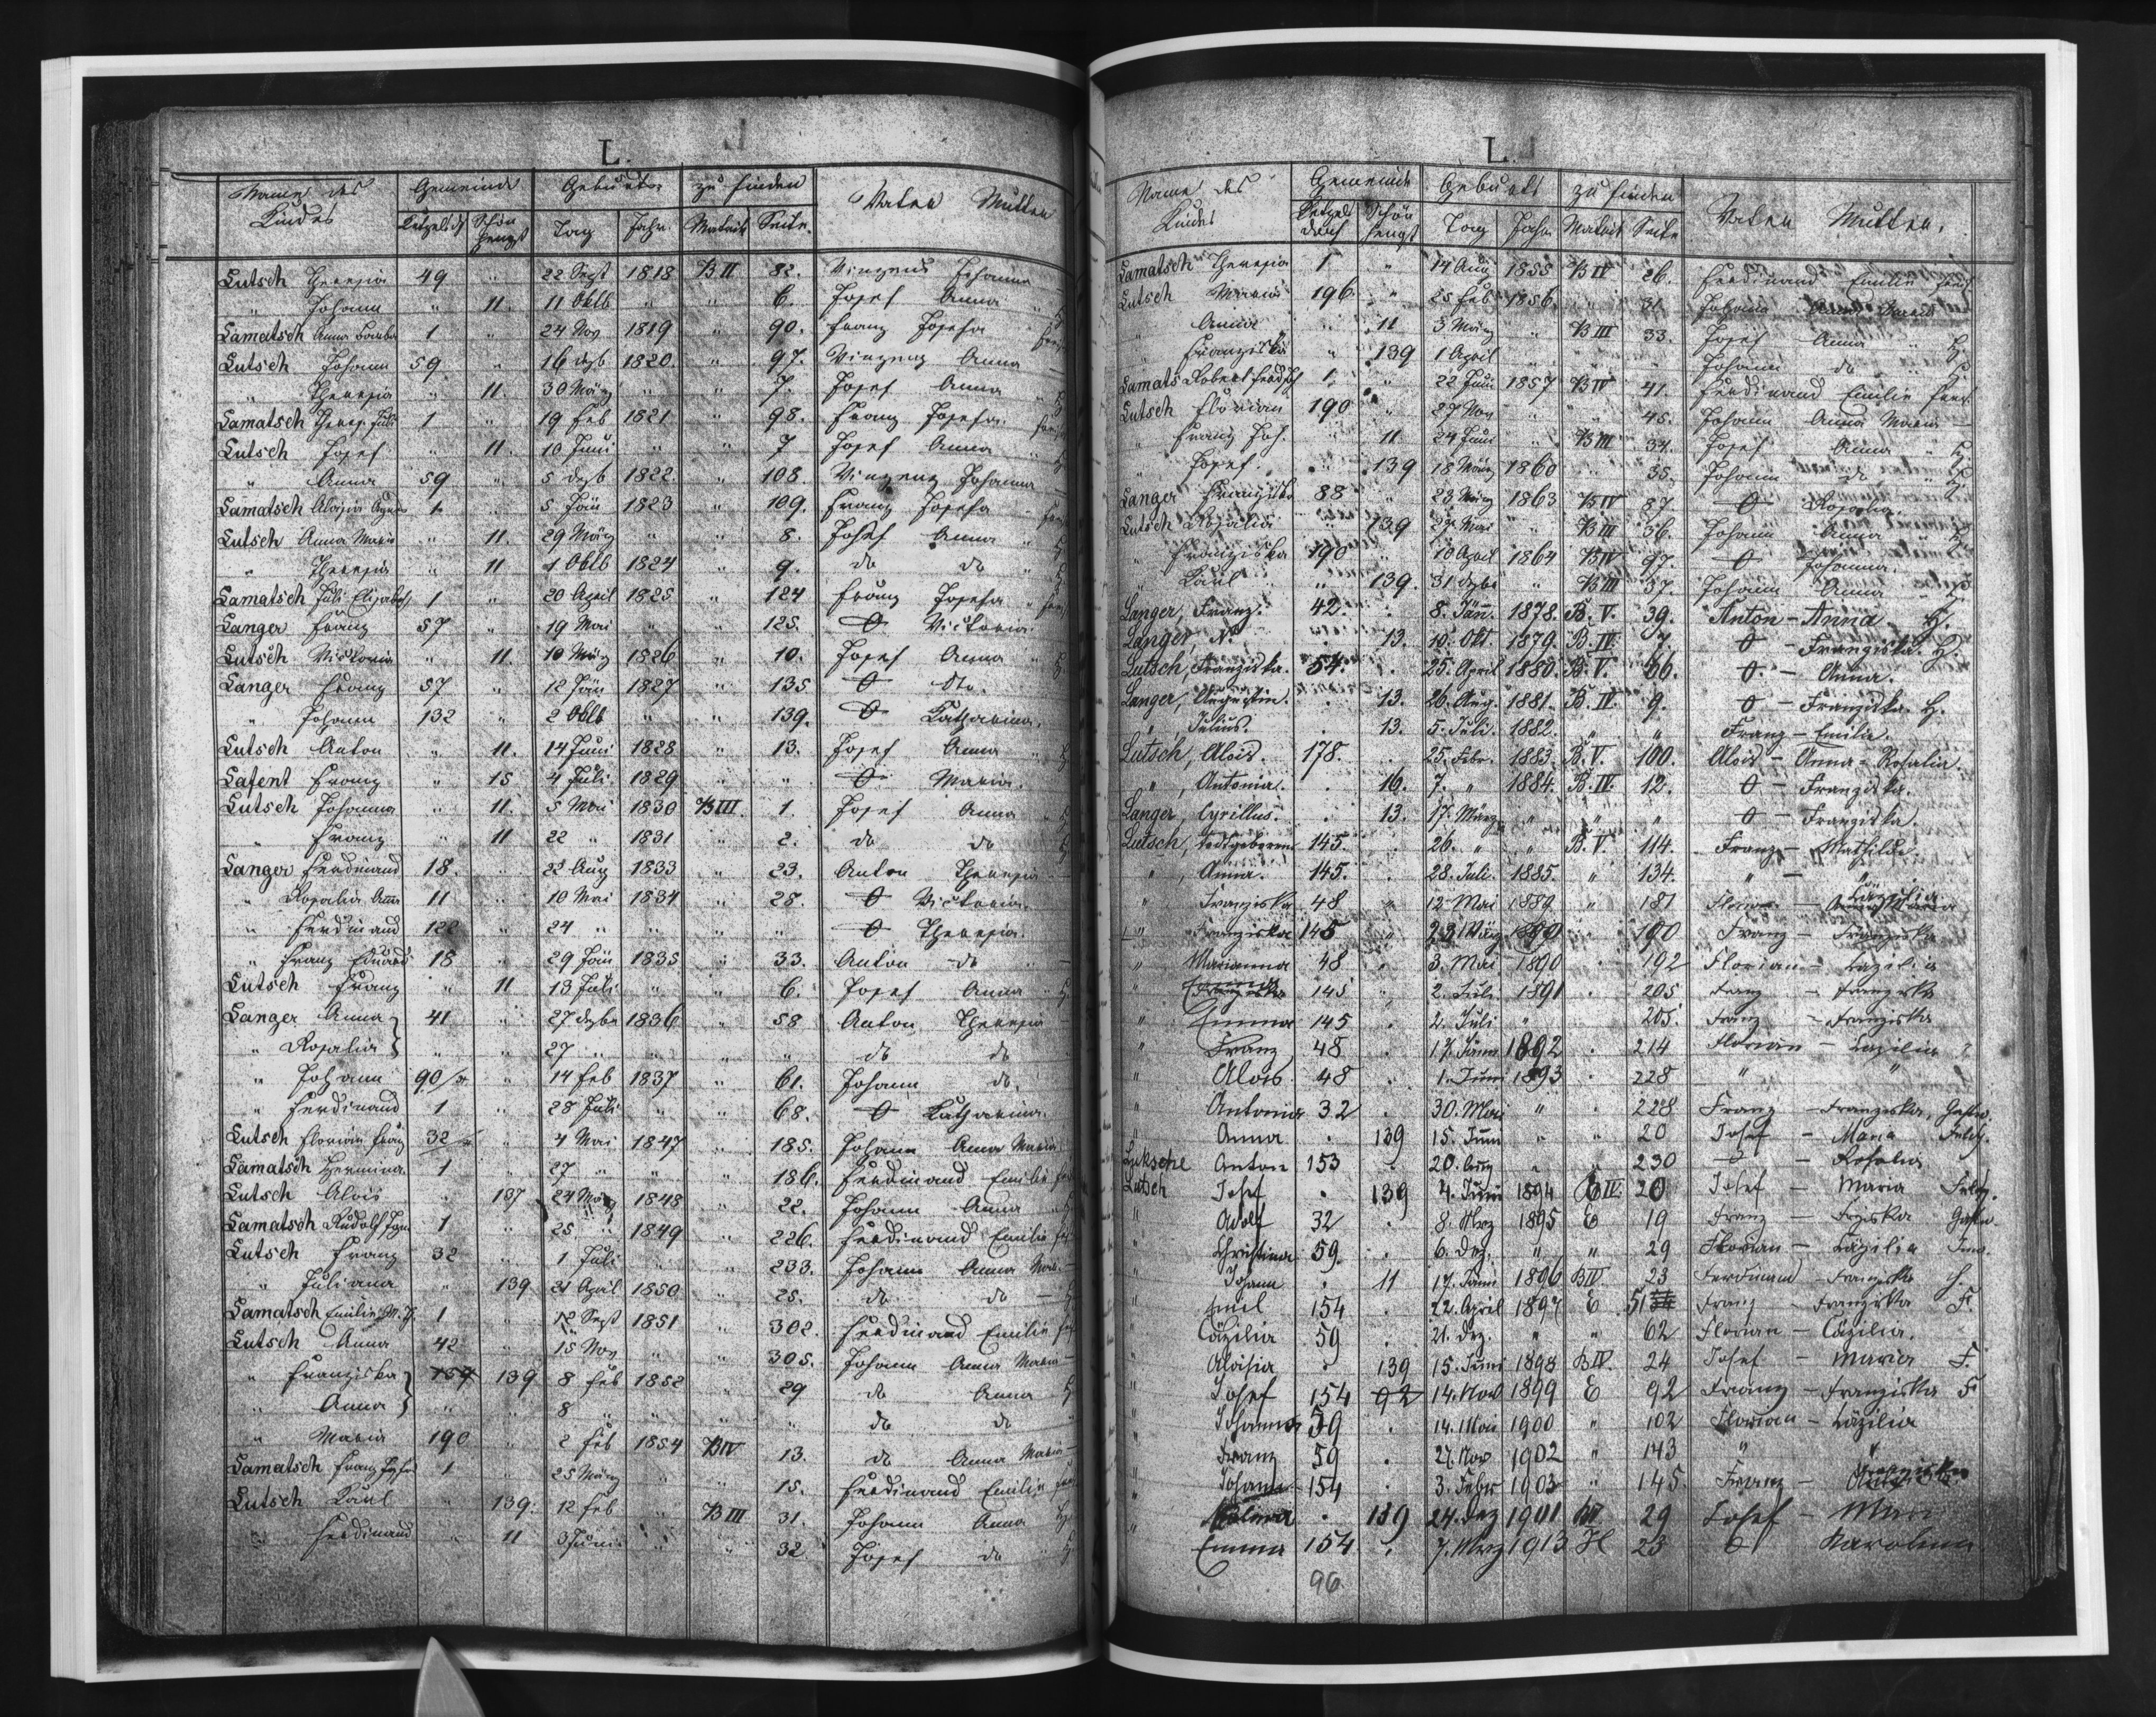 L.
Name des Kindes Gemeinde Geburts zu finden Vater Mutter
Ketzelsdf Schön hengst Tag Jahr Matrik Seite
Lutsch Theresia 49 " 22 Sept 1818 B II 82. Vinzenz Johanna
" Johann " 11. 11 Oktb " " 6. Josef Anna
Lamatsch Anna Barba 1 " 24 Nov 1819 " 90. Franz Josefa
Lutsch Johann 59 " 16 dezb 1820. " 97. Vinzenz Anna
" Theresia " 11. 30 März " " 7. Josef Anna
Lamatsch Theres. Juli 1 " 19 Feb 1821 " 98. Franz Josefa
Lutsch Josef " 11. 10 Juni " " 7 Josef Anna
" Anna 59 " 5 dezb 1822. " 108. Vinzenz Johanna
Lamatsch Aloisia 1. " 5 Jän 1823 " 109. Franz Josefa
Lutsch Anna Maria " 11. 29 März " " 8. Josef Anna
" Theresia " 11 1 Oktb 1824 " 9. do do
Lamatsch Juli Elisabeth 1 " 20 April 1825 " 124 Franz Josefa
Langer Franz 57 " 19 Mai " " 125. O Victoria
Lutsch Victoria " 11. 10 März 1826 " 10. Josef Anna
Langer Franz 57 " 12 Jän 1827 " 135 O do.
" Johann 132 " 2 Oktb " " 139. O Katharina.
Lutsch Anton " 11. 14 Juni 1828 " 13. Josef Anna
Lafent Franz " 15 4 Juli 1829 " " O Maria.
Lutsch Johanna " 11. 5 Mai 1830 B III. 1. Josef Anna
" Franz " 11 22 " 1831 " 2. do do
Langer Ferdinand 18. " 22 Aug 1833 " 23. Anton Theresia
" Rosalia Anna 11 " 10 Mai 1834 " 28. O Victoria.
" Ferdinand 122 " 24 " " " " O Theresia.
" Franz Eduard 18 " 29 Jän 1835 " 33. Anton do
Lutsch Franz " 11 13 Juli " " 6. Josef Anna
Langer Anna 41 " 27 dezbr 1836 " 58 Anton Theresia
" Rosalia " " 27 " " " " do do
" Johann 90 " 14 Feb 1837 " 61. Johann do.
" Ferdinand 1 " 28 Juli " " 68. O Katharina.
Lutsch Florian Franz 32 " 4 Mai 1847 " 185. Johann Anna Maria
Lamatsch Hermina. 1 " 27 " " " 186. Ferdinand Emilie
Lutsch Alois " 137 24 März 1848 " 22. Johann Anna
Lamatsch Rudolf 1 " 25 " 1849 " 226. Ferdinand Emilie
Lutsch Franz 32 " 1 Juli " " 233. Johann Anna Mar.
" Juliana " 139 21 April 1850 " 25. do do
Lamatsch Emilie M. 1 " 12 Sept 1851 " 302. Ferdinand Emilie
Lutsch Anna 42 " 15 Nov " " 305. Johann Anna Maria
" Franziska 139 8 Feb 1852 " 29 do Anna
" Anna " " 8 " " " " do do
" Maria 190 " 2 Feb 1854 B IV 13. do Anna Maria
Lamatsch Franz Josef 1 " 25 März " " 15. Ferdinand Emilie
Lutsch Karl " 139. 12 Feb " B III 31. Johann Anna
" Ferdinand " 11 3 Juni " " 32 Josef do
L.
Name des Kindes Gemeinde Geburts zu finden Vater Mutter.
Ketzels dorf Schön hengst Tag Jahr Matrik Seite
Lamatsch Theresia 1 " 14 Aug 1855 B IV 26. Ferdinand Emilie
Lutsch Maria 196. " 25 Feb 1856. " 31. Johann
" Anna " 11 3 März " B III 33. Josef Anna
" Franziska " 139 1 April " " " Johann do
Lamats Robert Ferd 1 " 22 Juni 1857 B IV 41. Ferdinand Emilie
Lutsch Florian 190 " 27 Nov " " 45. Johann Anna Maria
" Franz Jos. " 11. 24 Juni " B III 34. Josef Anna
" Josef " 139 18 März 1860 " 35. Johann do
Langer Franziska 88 " 23 März 1863 B IV 87 O Rosalia.
Lutsch Rosalia " 139 27 Mai " B III 36. Johann Anna
" Franziska 190 " 10 April 1864 B IV 97. O Johanna.
" Karl " 139. 31 dezbr " B III 37. Johann Anna
Langer, Franz. 42. . 8. Jän. 1878. B. V. 39. Anton - Anna H.
Langer, N. . 13. 10. Okt. 1879. B. IV. 7. O - Franziska. H.
Lutsch, Franziska. 54. . 25. April 1880. B. V. 66. O. - Anna.
Langer, Augustin. . 13. 26. Aug. 1881. B. IV. 9. O - Franziska. H.
" Julius. . 13. 5. Juli. 1882. " " Franz - Emilie.
Lutsch, Alois. 178. . 25. Febr. 1883. B. V. 100. Alois - Anna - Rosalia.
" , Antonia. . 16. 7. " 1884. B. IV. 12. O - Franziska.
Langer, Cyrillus. . 13. 17. März " " " O - Franziska.
Lutsch, todtgeboren 145. . 26. " " B. V. 114. Franz - Mathilde.
" , Anna. 145. . 28. Juli. 1885. " 134. " - "
" Franziska 48 " 12 Mai 1889 " 181 Florian - Cäzilia
" Franziska 145 " 23 März 1890 " 190 Franz - Franziska
" Marianna 48 . 3. Mai 1890 . 192 Florian - Cäzilia
" Franziska 145 " 2. Juli 1891 . 205 Franz - Franziska
" Emma 145 . 2. Juli " . 205. Franz - Franziska
" Franz 48 . 17. Jänn 1892 . 214 Florian - Cäzilia
" Alois 48 . 1. Juni 1893 . 228 " "
" Antonia 32 . 30. Mai " . 228 Franz - Franziska,
" Anna . 139 15. Juni " " 20 Josef - Maria
Luksche Anton 153 . 20. Aug " " 230 O - Rosalia
Lutsch Josef . 139 4. Juni 1894 B IV. 20 Josef - Maria
" Adolf 32 . 8. März 1895 E 19 Franz - Frziska
" Christina 59. . 6. Dez. " " 29 Florian - Cäzilia
" Johann . 11 17. Jänn 1896 B IV. 23 Ferdinand - Franziska
" Emil 154 . 22. April 1897 E 51 Franz - Franziska F
" Cäzilia 59 . 21. Dez. " " 62 Florian - Cäzilia.
" Aloisia . 139 15. Juni 1898 B IV. 24 Josef - Maria F.
" Josef 154 92 14. Nov 1899 E 92 Franz - Franziska F
" Johanna 59 . 14. Mai 1900 " 102 Florian - Cäzilia
" Franz 59 . 27. Nov 1902 " 143 " "
" Johann 154 . 3. Febr 1903 " 145. Franz - Franziska
" . 139 24. Dez 1901 29 Josef - Mari
Emma 154 . 7. März 1913 H 23 O Karolina
96